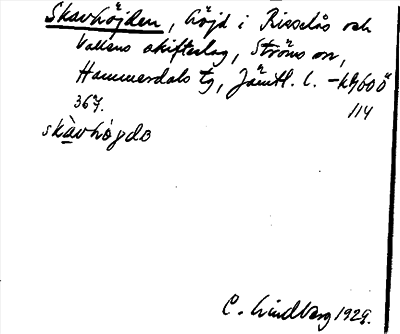 Skavhöjden, höjd i Risselås och
Vallens skifteslag, Ströms sn,
Hammerdals tg, Jämtl. l. – kg 600 Ö
367. 114
skàvhögdo
C. Lindberg 1929.